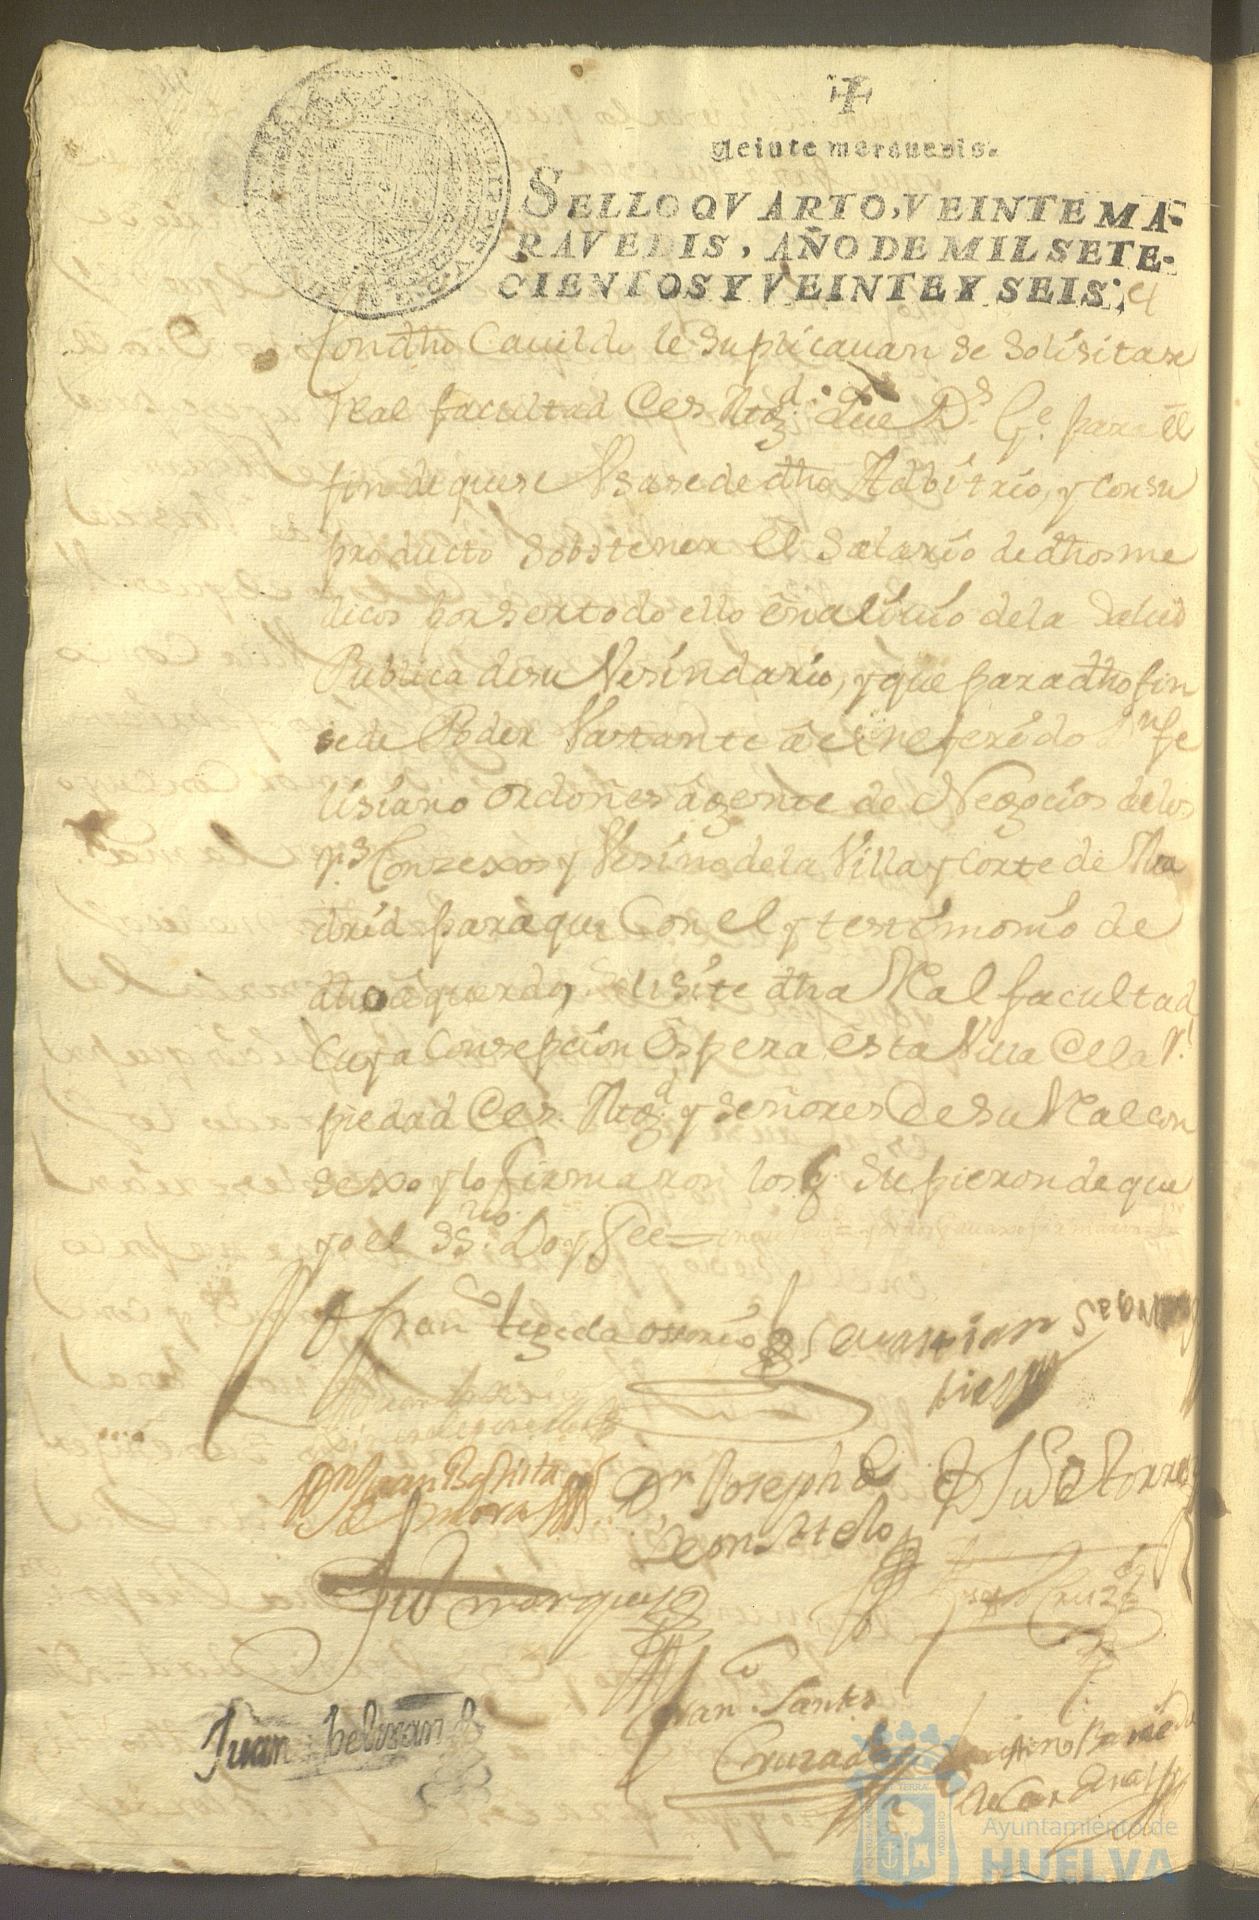 Veinte maravedis.
SELLO QVARTO, VEINTE MA-
RAVEDIS, AÑO DE MIL SETE-
CIENTOS Y VEINTE Y SEIS.
Con dho Cauildo le suplicauan se solisitase
Real facultad de s. Magd. que Ds. Ge. para el
fin de que se Vsase de dho Adbitrio, y con su
producto sobstener el salario de dhos me
dicos por ser todo ello en aliuio de la salud
Publica de su Vesindario, y que para dho fin
se de Poder Vastante a el referido Dn fe
lisiano Ordoñes agente de Negocios de los
Rs Conzexos y Vesino de la Villa y Corte de Ma
drid para que Con el y testimonio de
dho aquerdo, solisite dha Real facultad
Cuya Consepsion Espera esta Villa de la Rl
piedad de s. Magd y señores de su Real con
sexo y lo firmaron los q supieron de que
yo el Ssno Doy fee=
Franco tegeda osorio
Sauastian
Dn Juan Baptista
de mora
Dr Joseph de
Leon
Ju de torres
Ju marquez
Cruz
Juan beltran
Franco Santos
Cruzado
Ayuntamiento de
HUELVA